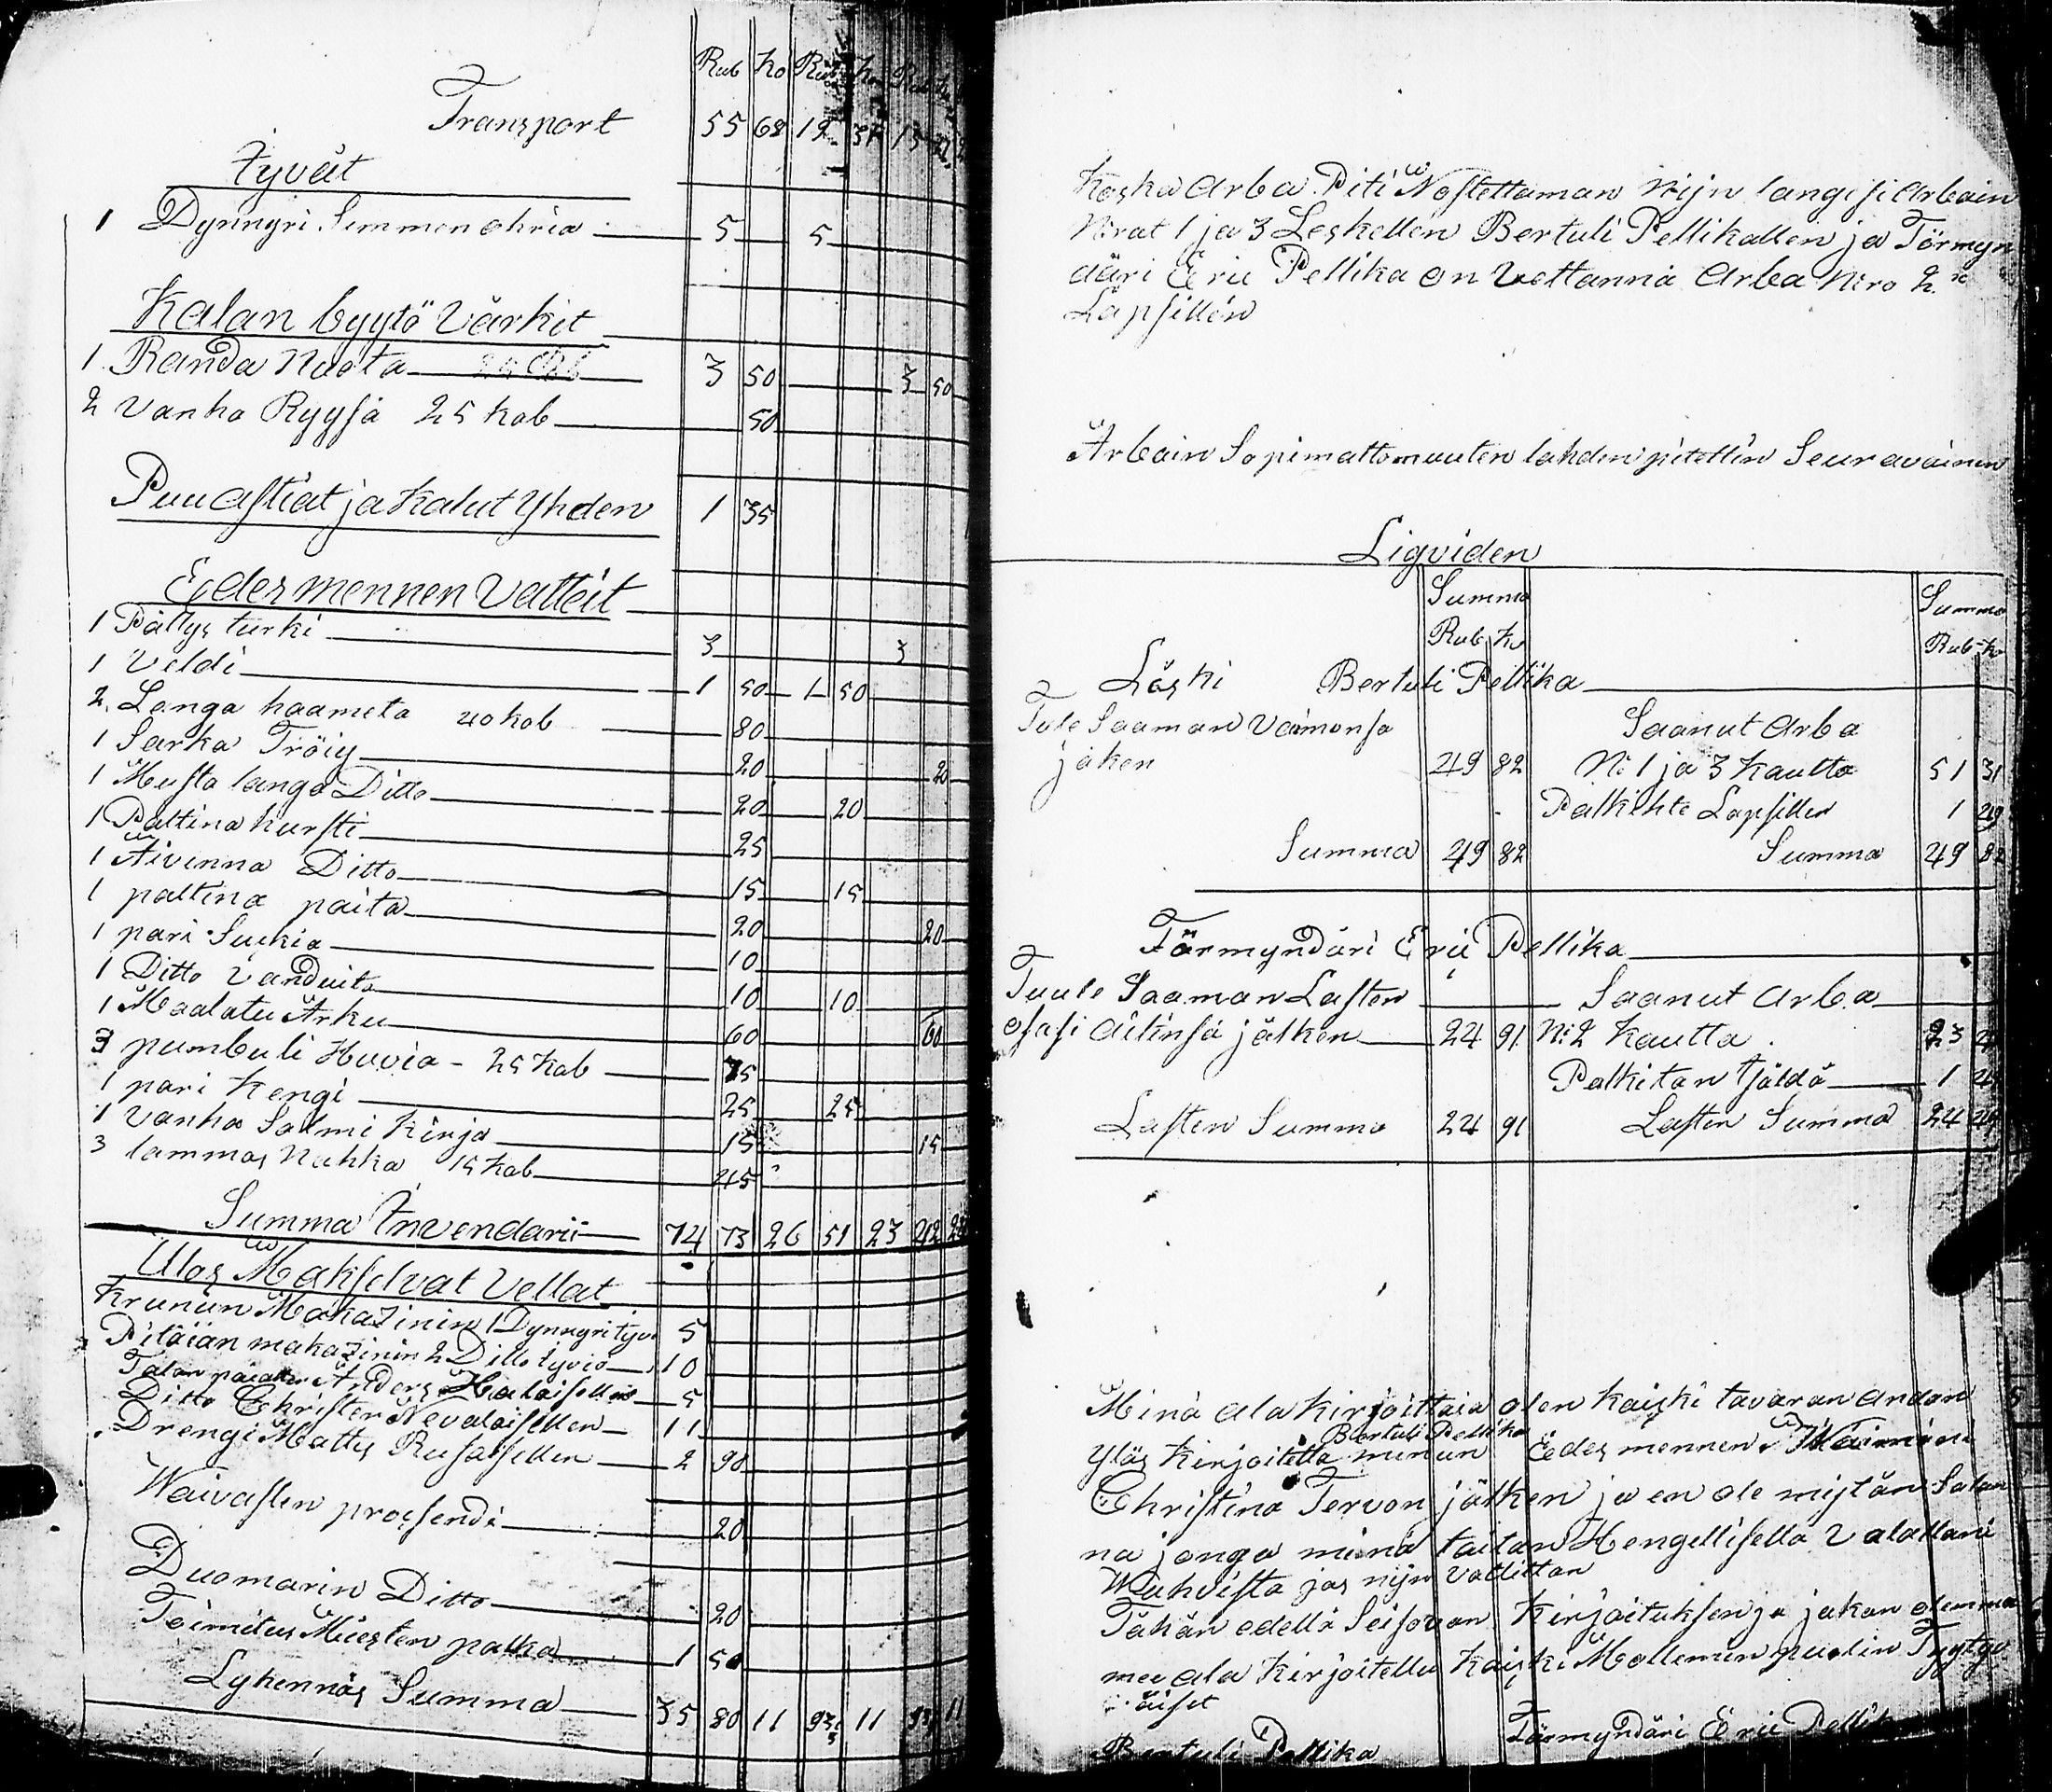 Rub Ko Rub Ko Rub
Transport 55 68 12 37 13
Jyvät
1 Dynnyri Semmen ohria 5 5
Kalan byytö Värkit
1 Randa Nuota 3 50 3 50
2 Vanha Ryysiä 25 kob 50
Puu Astiat ja Kalut Yhden 1 35
Edes mennen Vatteit
1 Pällys turki 3 3
1 Veldi 1 50 1 50
2 Langa haameta 40 kob 80
1 Sarka Tröiy 20 20
1 Musta langa Ditto 20 20
1 Paltina hursti 25
1 Äivinna Ditto 15 15
1 paltina paita 20 20
1 pari Sukia 10
1 Ditto Vanduita 10 10
1 Maalatu Arku 60 60
3 pumbuli Huvia - 25 Kob 75
1 pari Kengi 25 25
1 Vanha Salmi Kirja 15 15
3 lammas Nahka 15 kob 45
Summa Invendarii 74 73 26 51 23 42
Ulos Makselvat Vellat
Krunun Makazinin 1 Dynnyri Jyviä 5
Pitäiän makazinin 2 Ditto Jyviö 10
Talan Anders Halaisellen 5
Ditto Christer Nevalaisellen 11
Drengi Mattis Rusaisellen 2 90
Waivasten prossendi 20
Duomarin Ditto 20
Toimitus Miesten palka 1 50
Lykennös Summa 35 80 11 93 11 93 11
Koska Arba Piti Nostettaman Nijn langesi Arbain
Nirat 1 ja 3 Leskellen Bertuli Pellikallen ja Törmyn
däri Eric Pellika on Vottanna Arba Niro 2
Lapsillen
Arbain Sopimattomuuten tahden pitettin Seuravainen
Liqviden
Summa Summa
Rub Ko Rub Ko
Läski Bertuli Pellika
Tule Saaman Vaimonsa Saanut Arba
jäken 49 82 N: 1 ja 3 Kautta 51 31
Palkihte Lapsillen 1 49
Summa 49 82 Summa 49 82
Törmyndäri Eric Pellika
Tuule Saaman Lasten Saanut Arba
osasi Äitinsä jälken 24 91 N: 2 Kautta 23
Palkitan tjäldä 1 49
Lasten Summa 24 91 Lasten Summa 24
Minä ala kirjoittaia olen Kaiski tavaran andan
Bertuli Pellika
Yläs Kirjoitella minun Edes mennen Waimoni
Christina Tervon jälken ja en ole mistän Salan
na jonga minä taitan Hengellisella Valallani
Wahvista jos nijn Vattittan
Tähän edellä Seisovan Kirjoituksen ja jakan olemma
me ala Kirjoitellu Kaiski Mollemin puolin Tyytyv
äiset
Bertuli Pellika Törmyndäri Eric